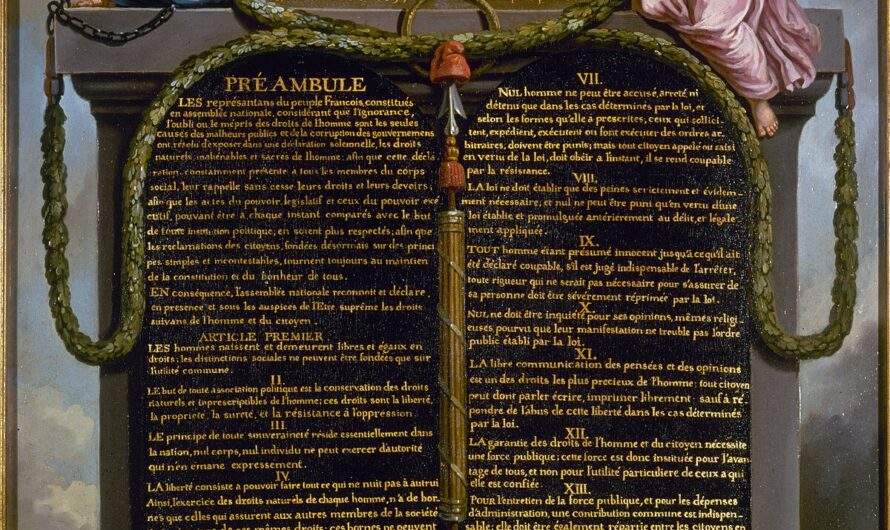 PRÉAMBULE
LES représentans du peuple François, constitués
en assemblée nationale, considérant que l'ignorance,
l'oubli ou le mépris des droits de l'homme sont les seules
causes des malheurs publics et de la corruption des gouvernemens
ont résolu d'exposer dans une déclaration solemnelle, les droits
naturels, inaliénables et sacrés de l'homme; afin que cette décla
ration, constamment présente a tous les membres du corps
social, leur rappelle sans cesse leurs droits et leurs devoirs,
afin que les actes du pouvoir législatif et ceux du pouvoir exé
cutif, pouvant être à chaque instant comparés avec le but
de toute institution politique; en soient plus respectés; afin que
les reclamations des citoyens, fondées désormais sur des princi
pes simples et incontestables, tournent toujours au maintien
de la constitution et du bonheur de tous.
EN conséquence, l'assemblée nationale reconnoit et déclare,
en presence et sous les auspices de l'Etre suprême les droits
suivans de l'homme et du citoyen.
ARTICLE PREMIER
LES hommes naissent et demeurent libres et égaux en
droits; les distinctions sociales ne peuvent être fondées que sur
l'utilité commune.
II.
LE but de toute association politique est la conservation des droits
naturels et inprescriptibles de l'homme; ces droits sont la liberté,
la propriété, la sureté, et la résistance à l'oppression.
III.
LE principe de toute souveraineté réside essentiellement dans
la nation, nul corps, nul individu ne peut exercer d'autorité
qui n'en émane expressement.
IV.
LA liberté consiste a pouvoir faire tout ce qui ne nuit pas à autrui
Ainsi, l'exercice des droits naturels de chaque homme, n'a de bor
nes que celles qui assurent aux autres membres de la société
de ces mêmes droits; ces bornes ne peuvent
VII.
NUL homme ne peut être accusé, arreté ni
détenu que dans les cas déterminés par la loi, et
selon les formes qu'elle à prescrites, ceux qui sollici
tent, expédient, exécutent ou font exécuter des ordres ar
bitraires, doivent être punis; mais tout citoyen appelé ou saisi
en vertu de la loi, doit obéir a l'instant, il se rend coupable
par la résistance.
VIII.
LA loi ne doit établir que des peines strictement et évidem
ment nécessaire, et nul ne peut être puni qu'en vertu d'une
loi établie et promulguée antérierement au délit, et légale
ment appliquée.
IX.
TOUT homme étant présumé innocent jusqu'a ce qu'il ait
été déclaré coupable, s'il est jugé indispensable de l'arrêter,
toute rigueur qui ne serait pas nécessaire pour s'assurer de
sa personne doit être sévèrement réprimée par la loi.
X.
NUL ne doit être inquiété pour ses opinions, mêmes religi
euses pourvu que leur manifestation ne trouble pas l'ordre
public établi par la loi.
XI.
LA libre communication des pensées et des opinions
est un des droits les plus precieux de l'homme: tout citoyen
peut donc parler écrire, imprimer librement: sauf à ré
pondre de l'abus de cette liberté dans les cas déterminés
par la loi.
XII.
LA garantie des droits de l'homme et du citoyen nécessite
une force publique; cette force est donc instituée pour l'avan
tage de tous, et non pour l'utilité particuliere de ceux a qui
elle est confiée.
XIII.
POUR l'entretien de la force publique, et pour les dépenses
d'administration, une contribution commune est indispen
sable: elle doit être également répartie entre les citoyens en